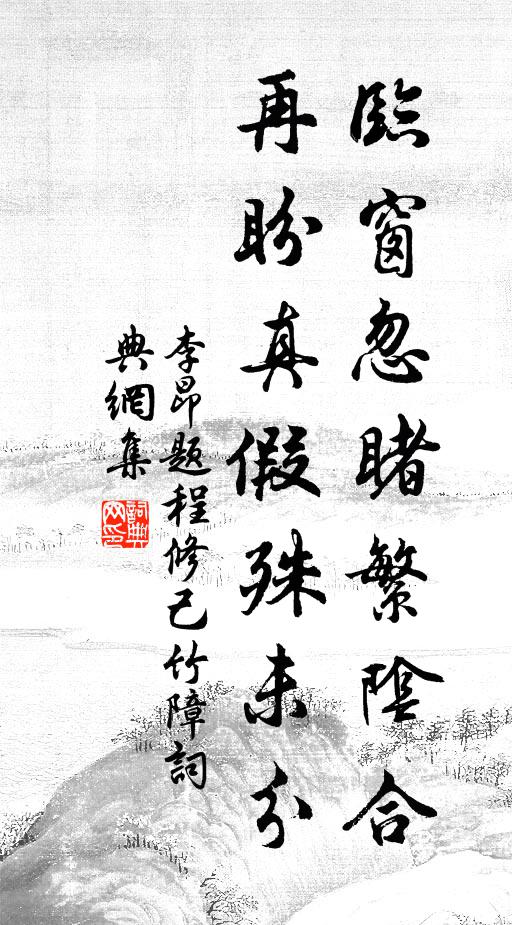 臨窗忽睹繁陰合
再盼真假殊未分
李昂題程修己竹障詞
典網集
詞典網印